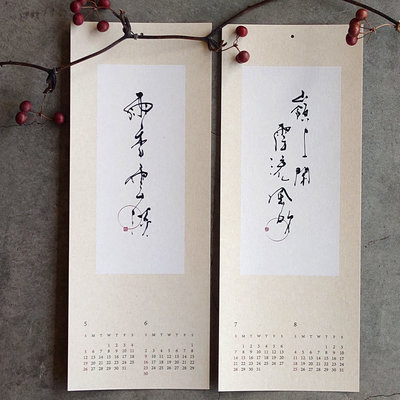 雨香雲淡
5
S M T W T F S
1 2 3 4
5 6 7 8 9 10 11
12 13 14 15 16 17 18
19 20 21 22 23 24 25
26 27 28 29 30 31
6
S M T W T F S
1
2 3 4 5 6 7 8
9 10 11 12 13 14 15
16 17 18 19 20 21 22
23 24 25 26 27 28 29
30
上閑
雲 風
7
S M T W T F S
1 2 3 4 5 6
7 8 9 10 11 12 13
14 15 16 17 18 19 20
21 22 23 24 25 26 27
28 29 30 31
8
S M T W T F S
1 2 3
4 5 6 7 8 9 10
11 12 13 14 15 16 17
18 19 20 21 22 23 24
25 26 27 28 29 30 31